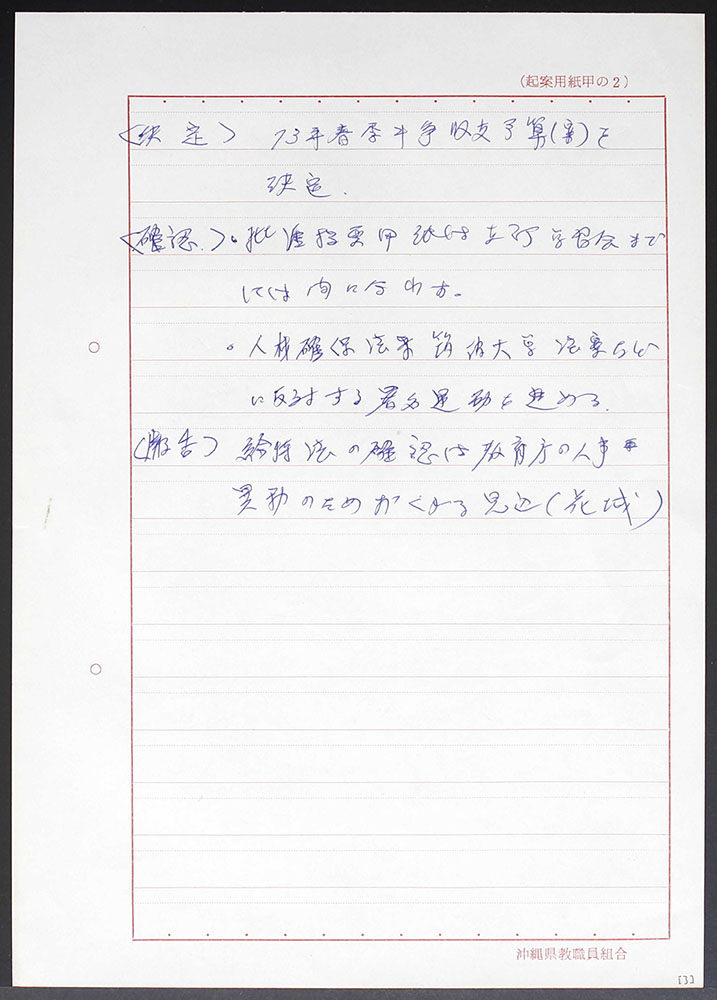 (起案用紙甲の2)
〈決定〉 73年春季斗争収支予算(案)を
決定.
〈確認.〉。批准投票用紙は 学習会まで
には間に合わす。
。人材確保法案 筑波大学法案など
に反対する署名運動を進める.
〈報告〉 給特法の確認は教育庁の人事
異動のためおくれる見込(花城)
沖縄県教職員組合
[3]